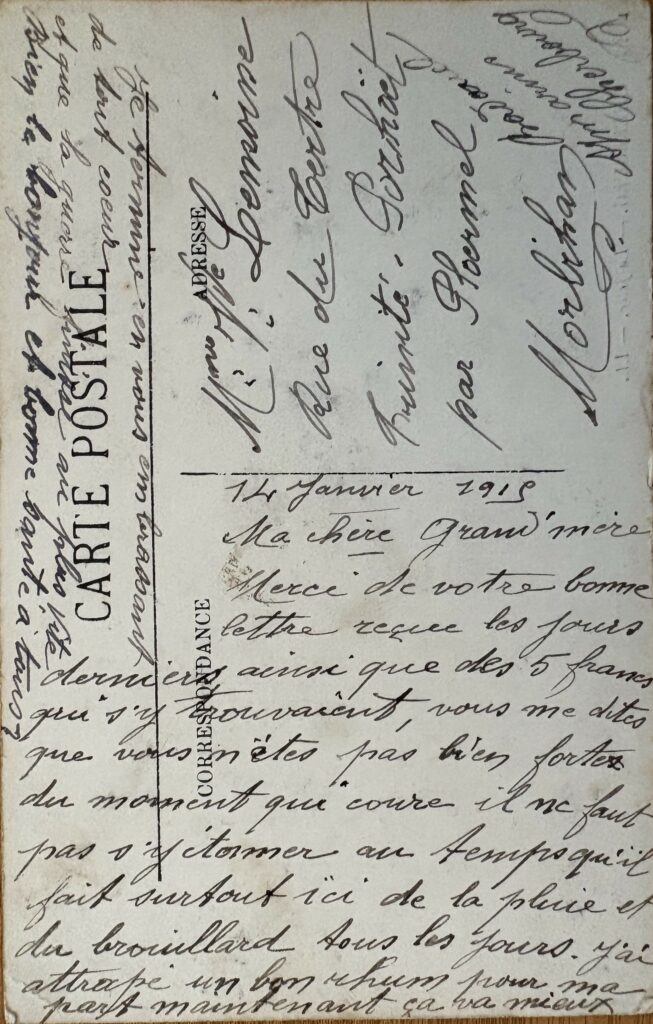 CARTE POSTALE
CORRESPONDANCE
ADRESSE
14 Janvier 1915
Ma chère Grand'mère
Merci de votre bonne
lettre reçue les jours
derniers ainsi que des 5 francs
qui s'y trouvaient, vous me dites
que vous n'êtes pas bien fortes
du moment qui coure il ne faut
pas s'y étonner au temps qu'il
fait surtout ïci de la pluie et
du brouillard tous les jours. J'ai
attrapé un bon rhum pour ma
part maintenant ça va mieux
Je termine en vous embrassant
de tout coeur
et que la guerre finisse au plus vite
Bien le bonjour et bonne santé à tous
M. Lemoine
Rue du Tertre
Trinité-Porhöët
par Ploermel
Morbihan
Cherbourg